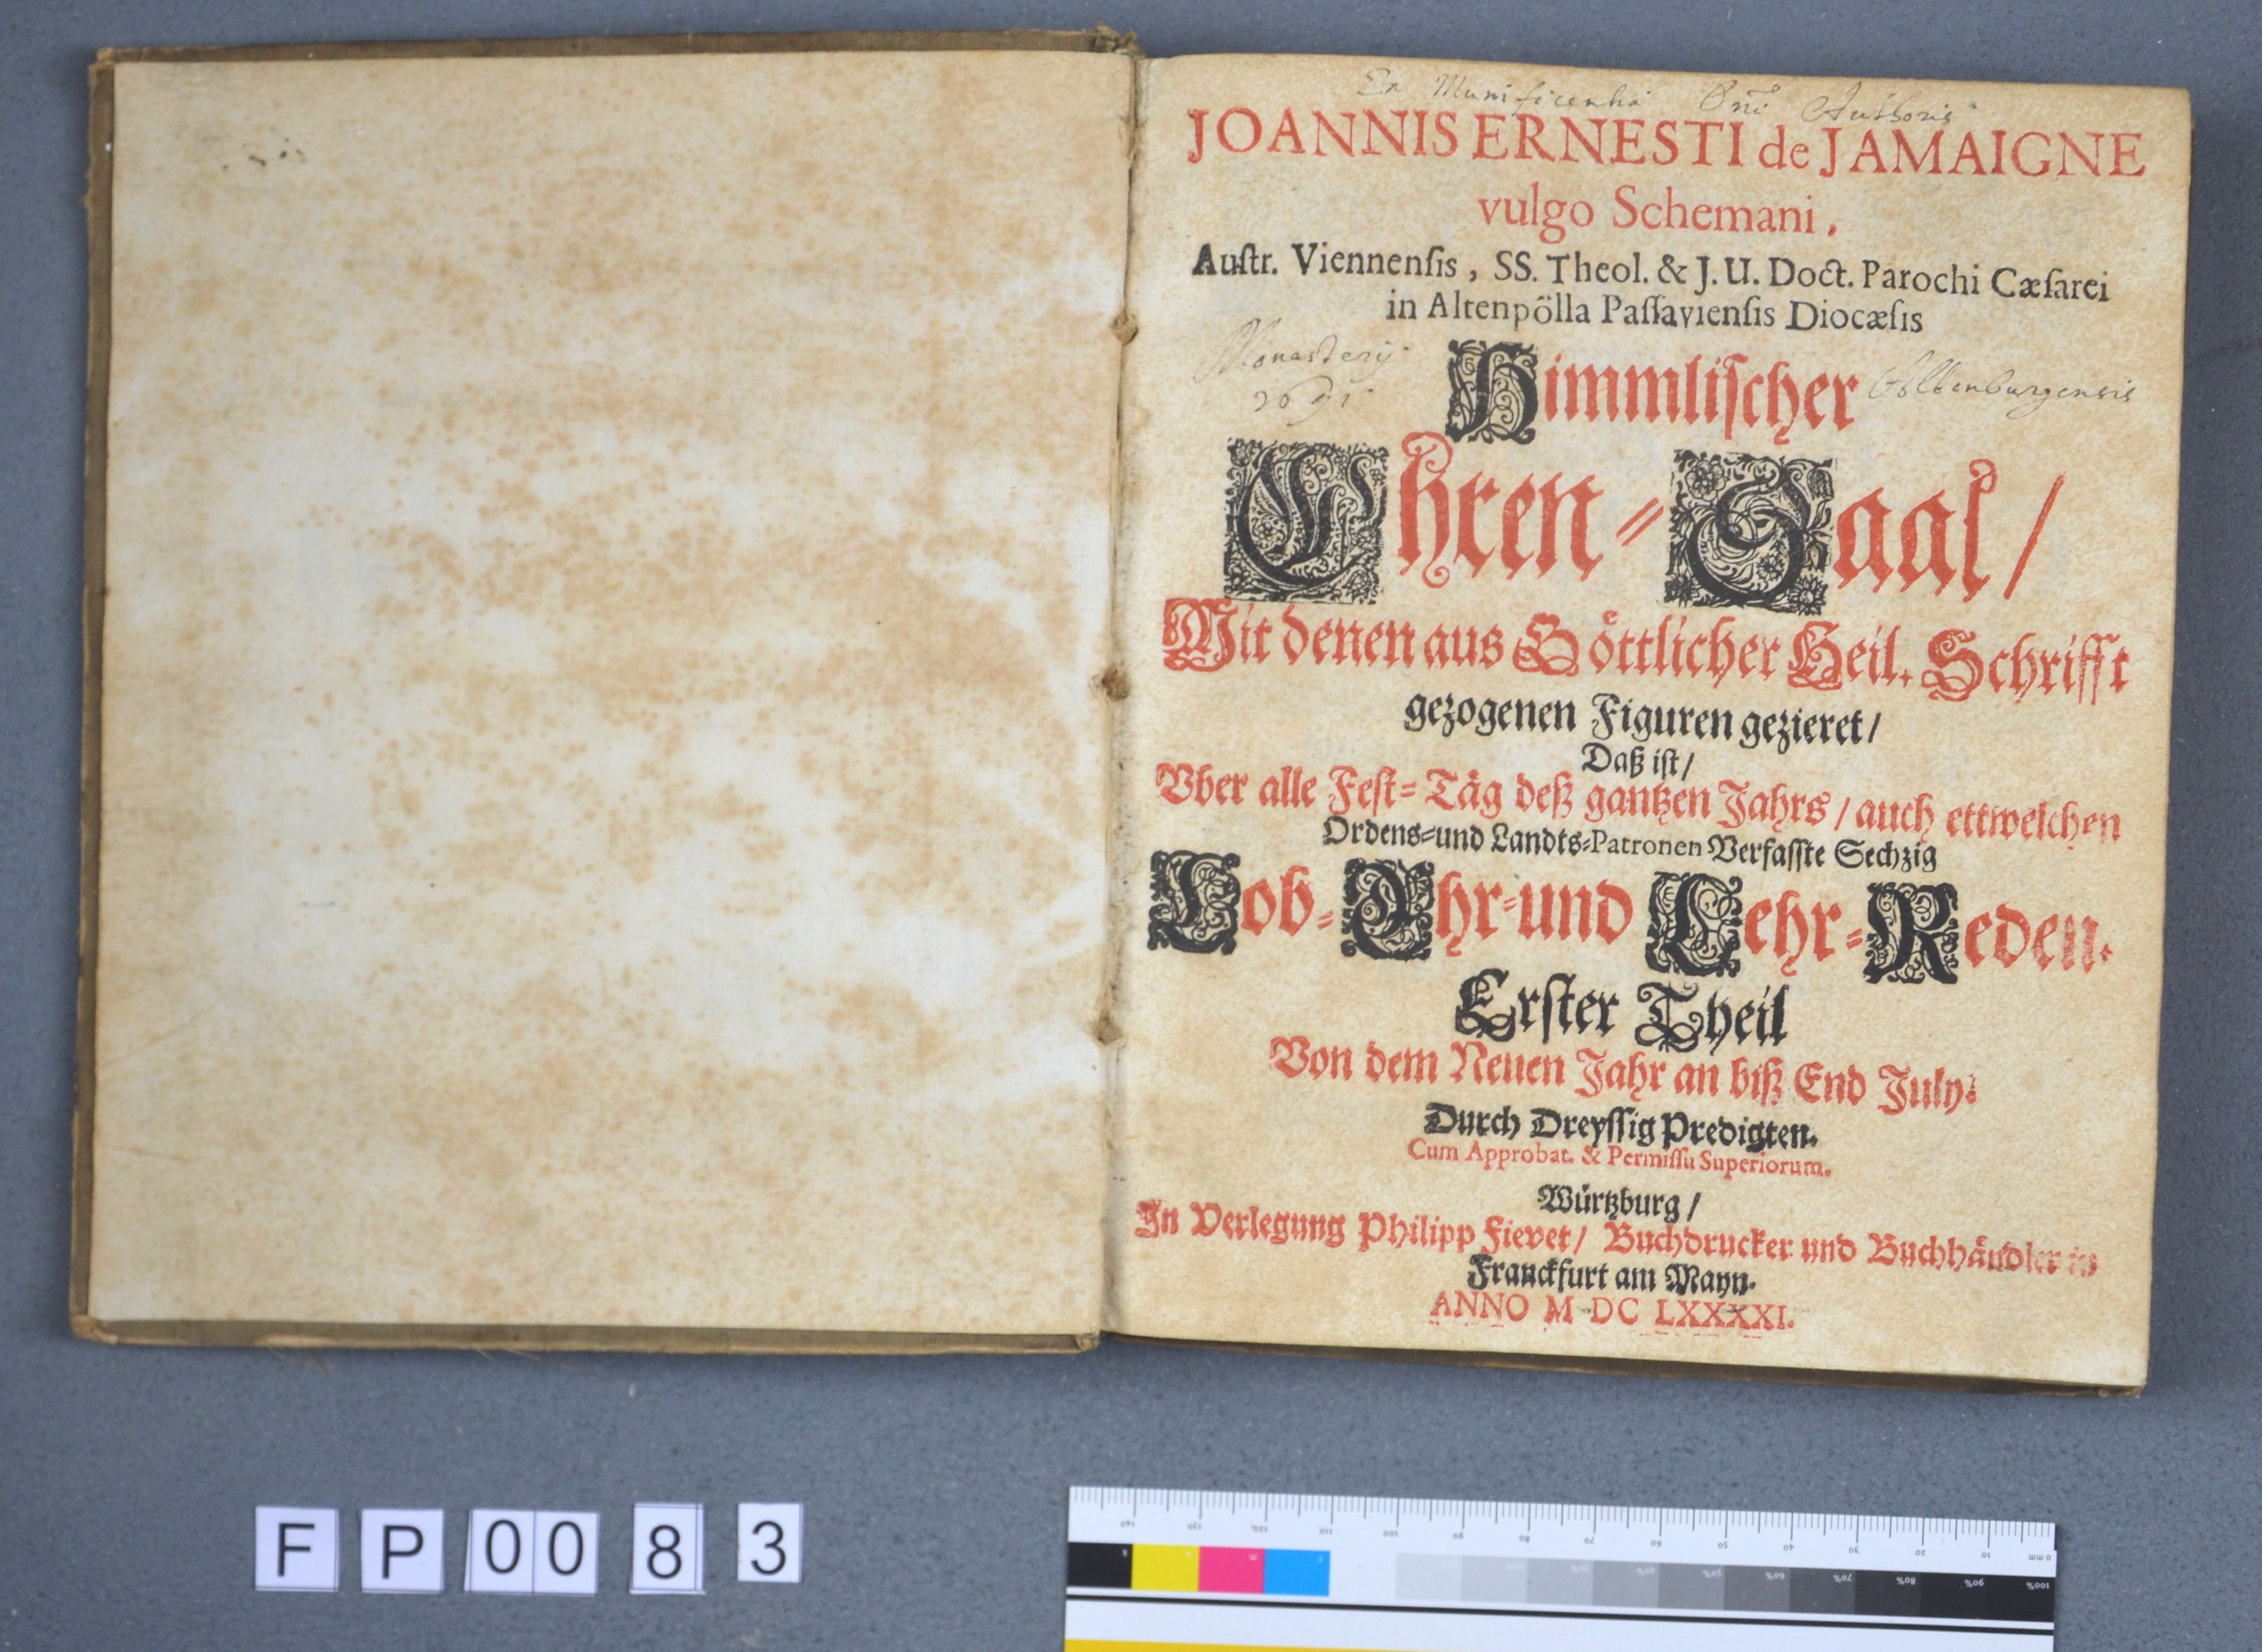 Ex Munificentia Dni Authoris
JOANNIS ERNESTI de JAMAIGNE
vulgo Schemani,
Auſtr. Viennenſis, SS. Theol. & J. U. Doct. Parochi Cæſarei
in Altenpölla Paſſavienſis Diocæſis
Monasterij Altenburgensis
1691.
Himmliſcher
Ehren-Saal/
Mit denen aus Göttlicher Heil. Schrifft
gezogenen Figuren gezieret/
Daß iſt/
Vber alle Feſt-Täg deß gantzen Jahrs/ auch ettwelchen
Ordens-und Landts-Patronen Verfaſſte Sechzig
Lob-Ehr-und Lehr-Reden.
Erſter Theil
Von dem Neuen Jahr an biß End July.
Durch Dreyſſig Predigten.
Cum Approbat. & Permiſſu Superiorum.
Würtzburg/
In Verlegung Philipp Fievet/ Buchdrucker und Buchhändler in
Franckfurt am Mayn.
ANNO M DC LXXXXI.
FP0083
140 130 120 110 100 90 80 70 60 50 40 30 20 10 0 mm
k y m c 50% 60% 70% 80% 90% 100%